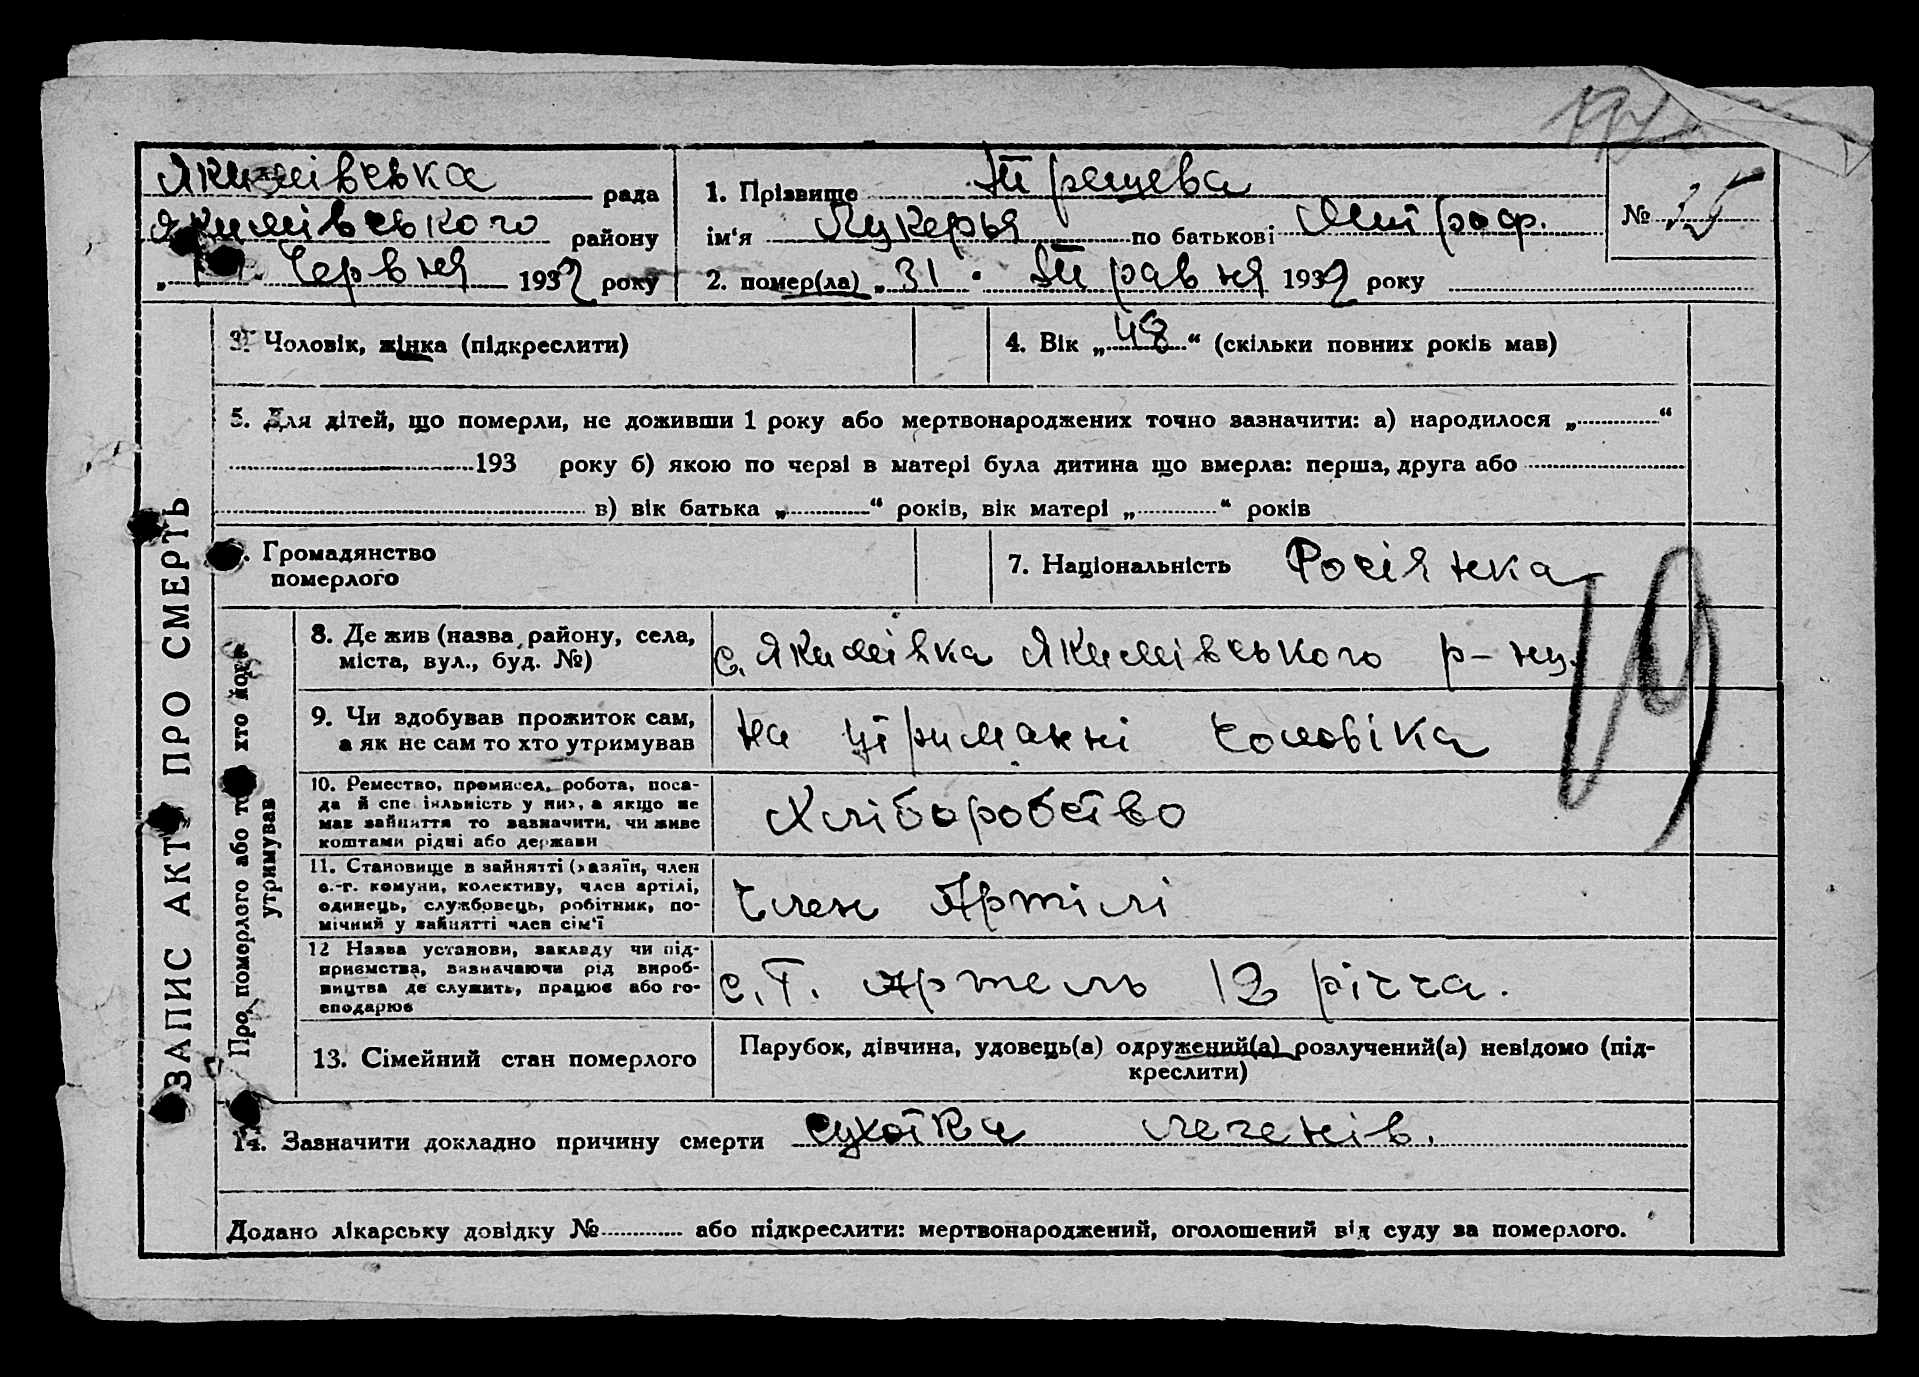 Якимівська рада
Якимівського району
„ Червня 1932 року
1. Прізвище Трещева
ім'я Лукерья по батькові Митроф.
№ 25
2. помер(ла) „31" Травня 1932 року
3. Чоловік, жінка (підкреслити)
4. Вік „48“ (скільки повних років мав)
5. Для дітей, що померли, не доживши 1 року або мертвонароджених точно зазначити: а) народилося „ “
193 року б) якою по черзі в матері була дитина що вмерла: перша, друга або
в) вік батька „ “ років, вік матері „ “ років
. Громадянство
померлого
7. Національність Росіянка
ЗАПИС АКТ ПРО СМЕРТЬ
Про померлого або то хто його
утримував
8. Де жив (назва району, села,
міста, вул., буд. №)
с. Якимівка Якимівського р-ну.
9. Чи здобував прожиток сам,
а як не сам то хто утримував
на утриманні чоловіка
10. Ремество, промисел, робота, поса-
да й спеціяльність у них, а якщо не
мав зайняття то зазначити, чи живе
коштами рідні або держави
Хліборобство
11. Становище в зайнятті (хазяїн, член
с.-г. комуни, колективу, член артілі,
одинець, службовець, робітник, по-
мічний у зайнятті член сім'ї
Член Артілі
12 Назва установи, закладу чи під-
приємства, зазначаючи рід вироб-
ництва де служить, працює або го-
сподарює
с.г. артель 12 річча.
13. Сімейний стан померлого
Парубок, дівчина, удовець(а) одружений(а) розлучений(а) невідомо (під-
креслити)
14. Зазначити докладно причину смерти сухотка легенів.
Додано лікарську довідку № або підкреслити: мертвонароджений, оголошений від суду за померлого.
19